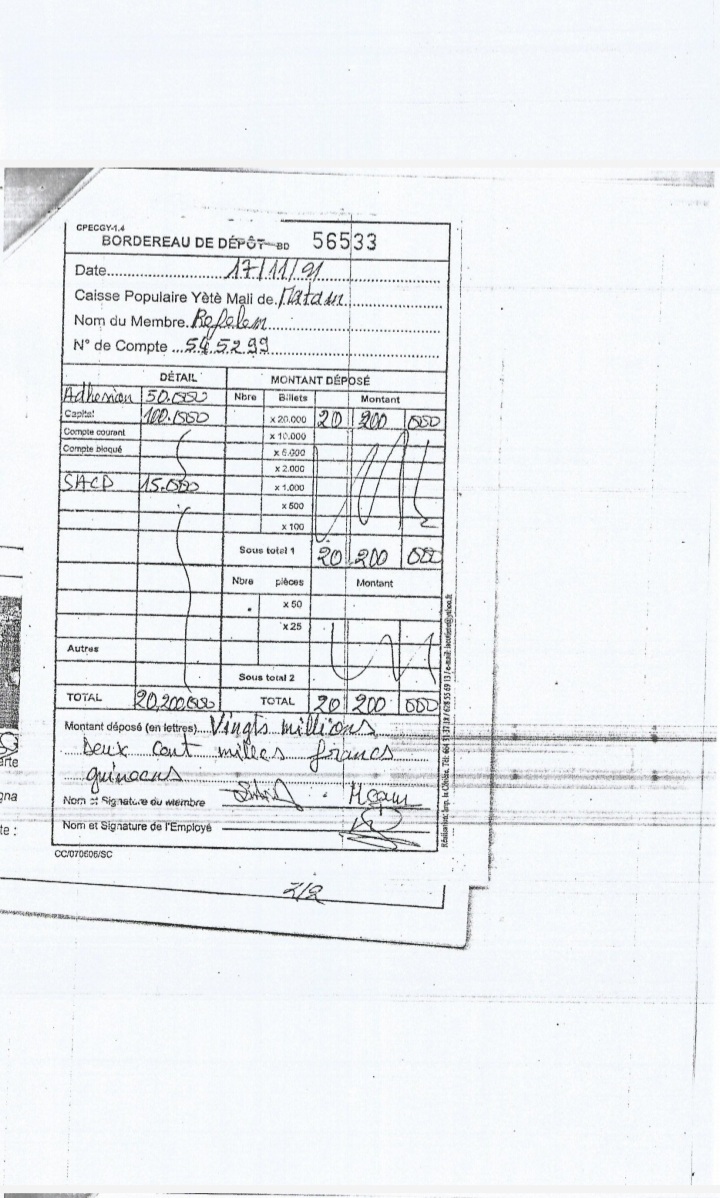 CPECGY-1.4
BORDEREAU DE DÉPÔT BD 56533
Date 17/11/91
Caisse Populaire Yètè Mali de Matam
Nom du Membre
N° de Compte 545299
DÉTAIL MONTANT DÉPOSÉ
Adhesion 50.000 Nbre Billets Montant
Capital 100.000 x 20.000 20 200 000
Compte courant x 10.000
Compte bloqué x 5.000
x 2.000
SACD 15.000 x 1.000
x 500
x 100
Sous total 1 20 200 000
Nbre pièces Montant
x 50
x 25
Autres
Sous total 2
TOTAL 20,200,000 TOTAL 20 200 000
Montant déposé (en lettres) Vingts millions
Deux cent milles francs
guineens
Nom et Signature du membre
Nom et Signature de l'Employé
CC/070606/SC
2/2
arte
gna
te :